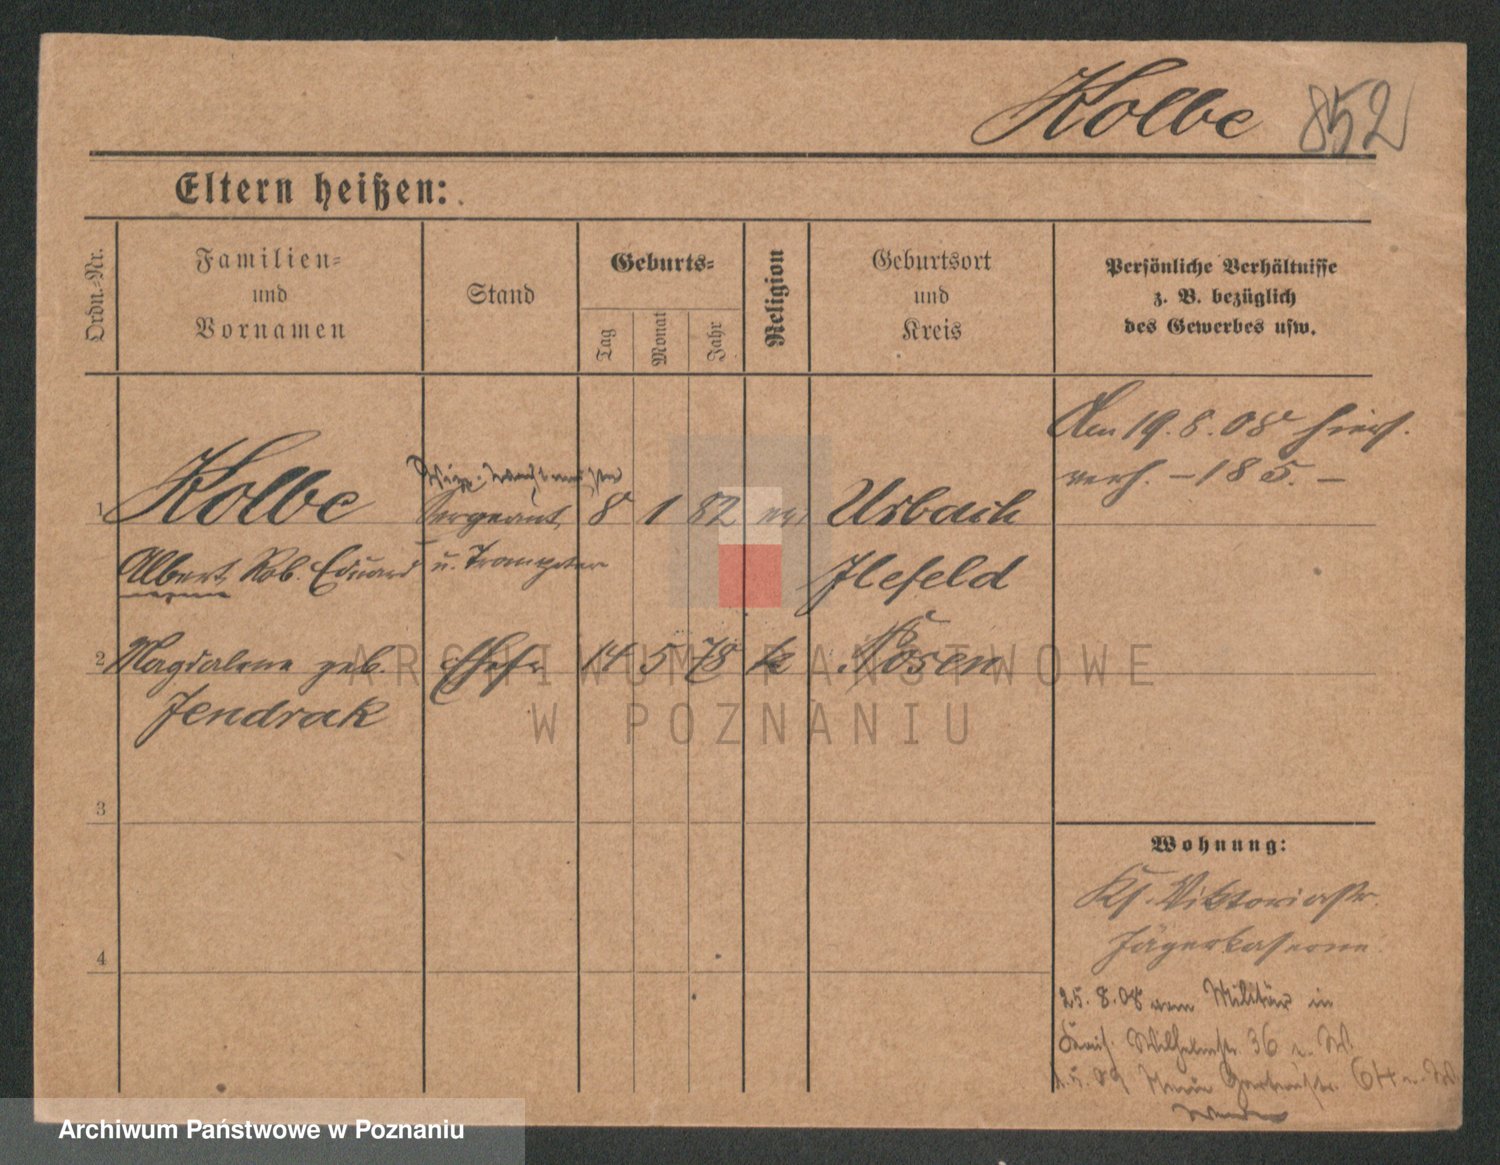 Kolbe 852
Eltern heißen:
Ordn.-Nr.
Familien- und Vornamen
Stand
Geburts-
Tag
Monat
Jahr
Religion
Geburtsort und Kreis
Persönliche Verhältnisse
z. B. bezüglich
des Gewerbes usw.
Am 19.8.08 hier
verh. – 185. –
1 Kolbe Sergeant, 8 1 82 ev. Urbach
Albert Rob. Eduard u. Trompeter Ilefeld
2 Magdalene geb. Ehefr 14 5 78 k Posen
Jendrak
3
4
Wohnung:
Viktoriastr.
Jägerkaserne.
25.8.08 vom Militär in
Wilhelmstr 36 n. W.
1.5.09 64
ARCHIWUM PAŃSTWOWE
W POZNANIU
Archiwum Państwowe w Poznaniu